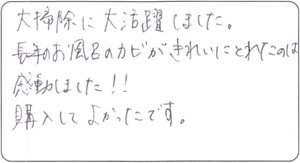 大掃除に大活躍しました。
長年のお風呂のカビがきれいにとれたのは
感動しました!!
購入してよかったです。